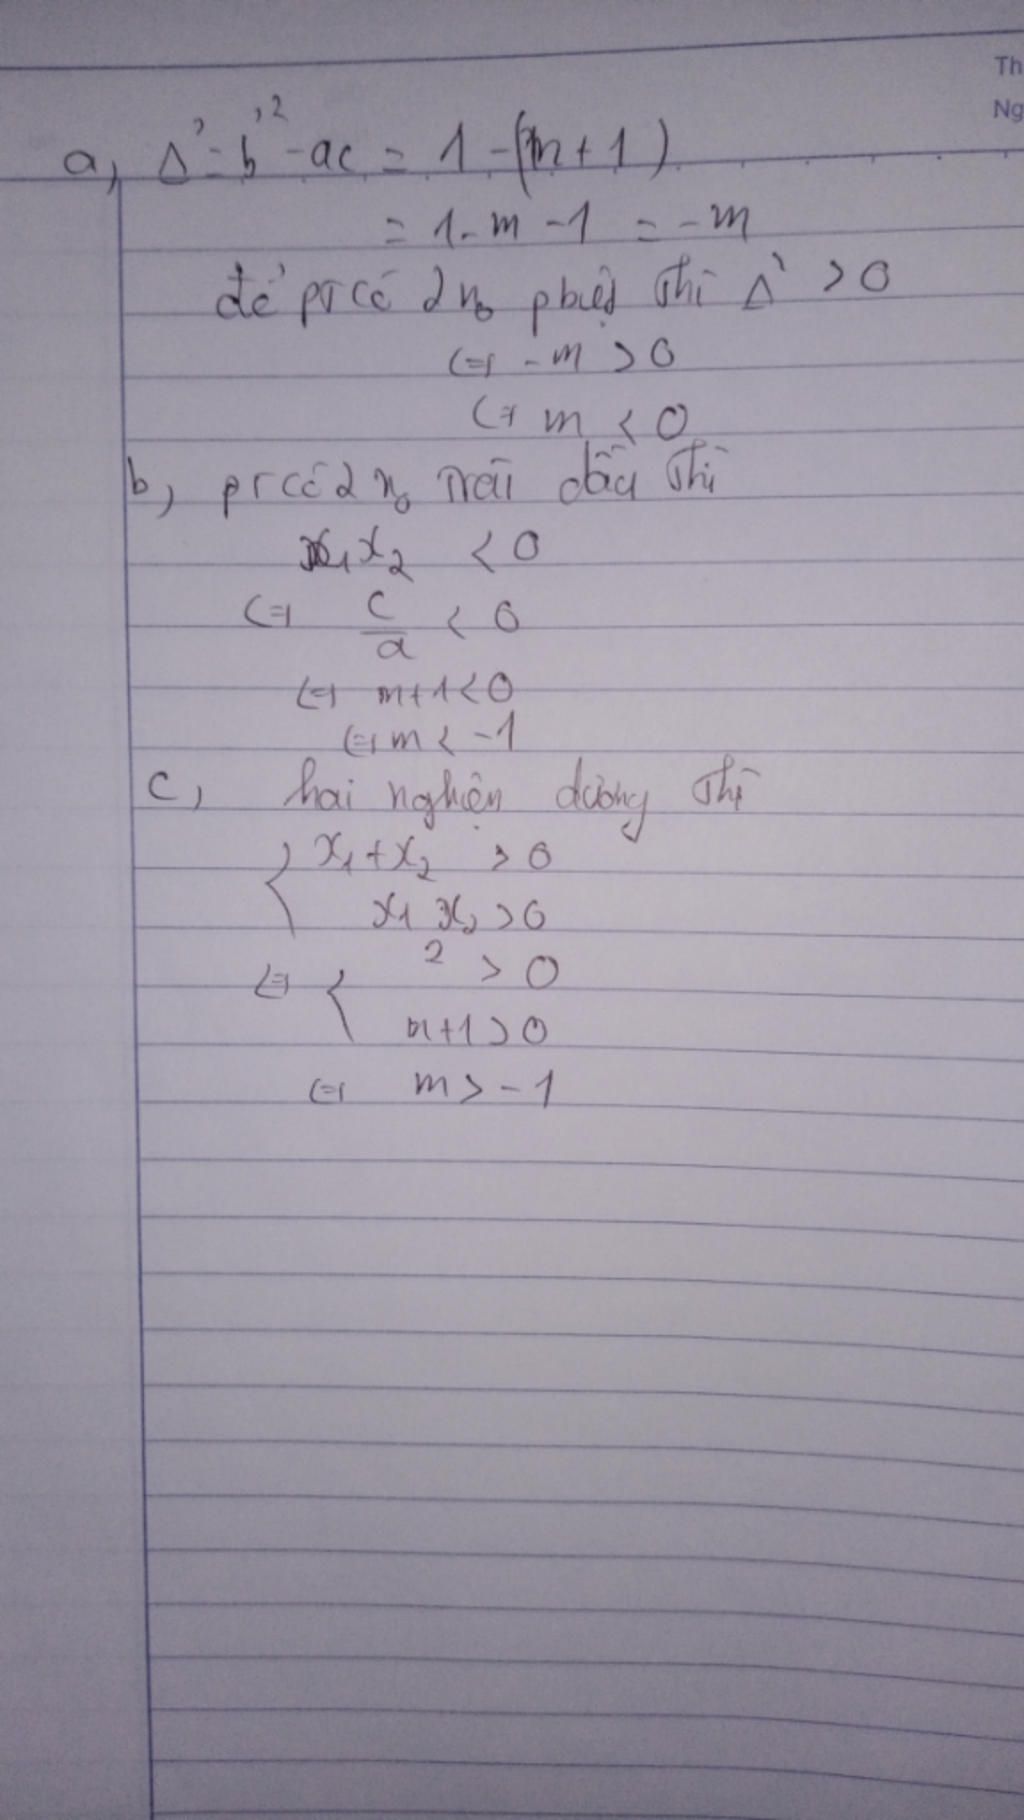 Th
Ng
a, Δ' = b'² - ac = 1 - (m + 1)
= 1 - m - 1 = -m
để pt có 2 n₀ pbiệt thì Δ' > 0
(=) -m > 0
(=) m < 0
b, pt có 2 n₀ trái dấu thì
x₁x₂ < 0
(=) c/a < 0
(=) m+1 < 0
(=) m < -1
c, hai nghiện dương thì
{ x₁ + x₂ > 0
x₁ x₂ > 0
(=) { 2 > 0
m+1 > 0
(=) m > -1